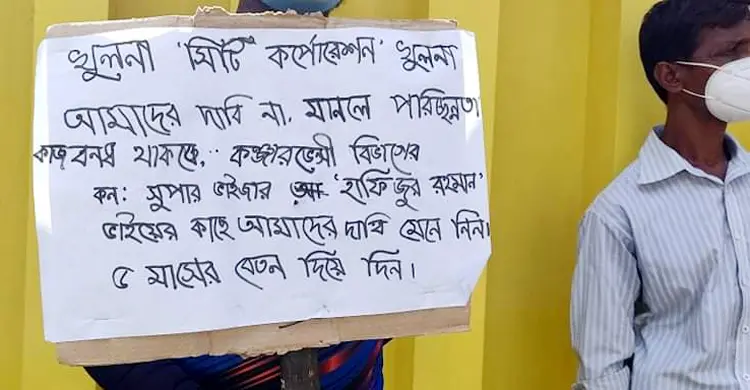 খুলনা 'সিটি কর্পোরেশন' খুলনা
আমাদের দাবি না, মানলে পরিচ্ছন্নতা
কাজ বনধ থাকছে,.. কঞ্জারভেন্সী বিভাগের
কন: সুপার ভাইজার 'হাফিজুর রহমান'
ভাইয়ের কাছে আমাদের দাবি মেনে নিন।
৫ মাসের বেতন দিয়ে দিন।